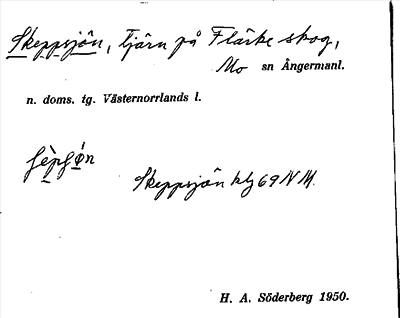 Skeppsjön, tjärn på Flärke skog,
Mo sn Ångermanl.
n. doms. tg. Västernorrlands l.
Skeppsjön kbl 69 NM.
H. A. Söderberg 1950.